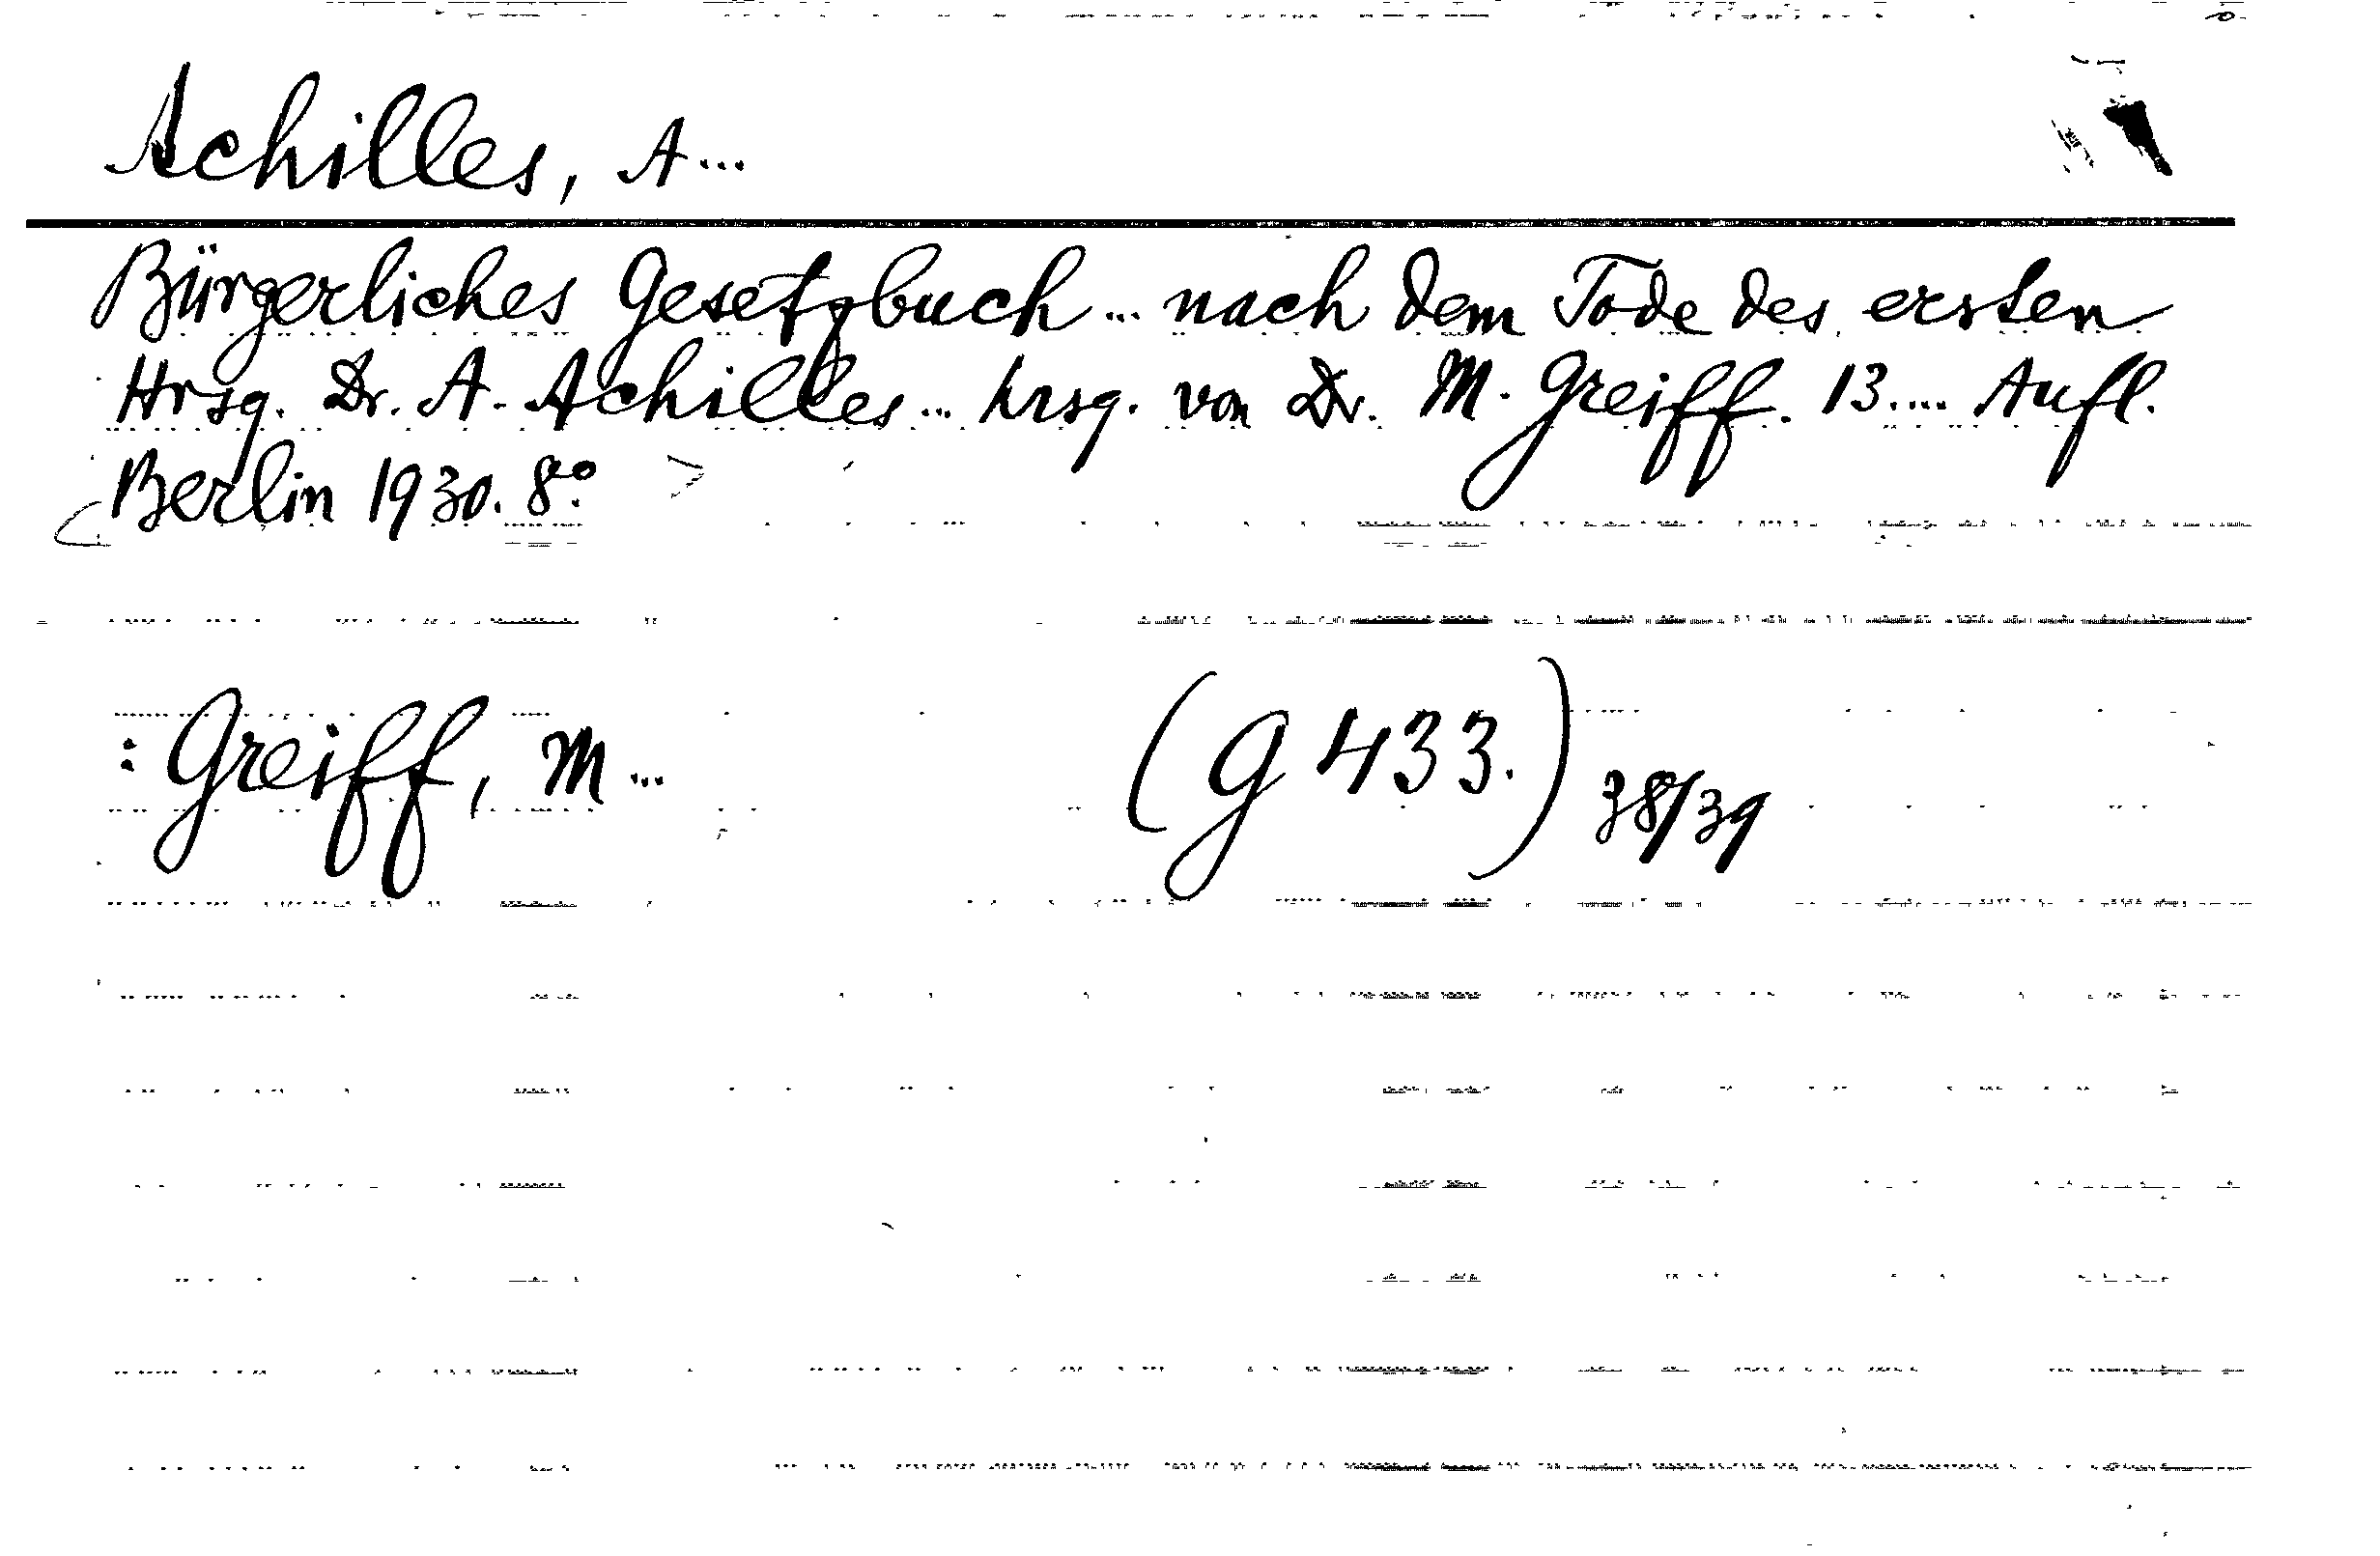 Achilles, A...
Bürgerliches Gesetzbuch... nach dem Tode des ersten
Hrsg. Dr. A. Achilles... hrsg. von Dr. M. Greiff. 13.... Aufl.
Berlin 1930. 8°.
: Greiff, M... (G 433.) 38/39